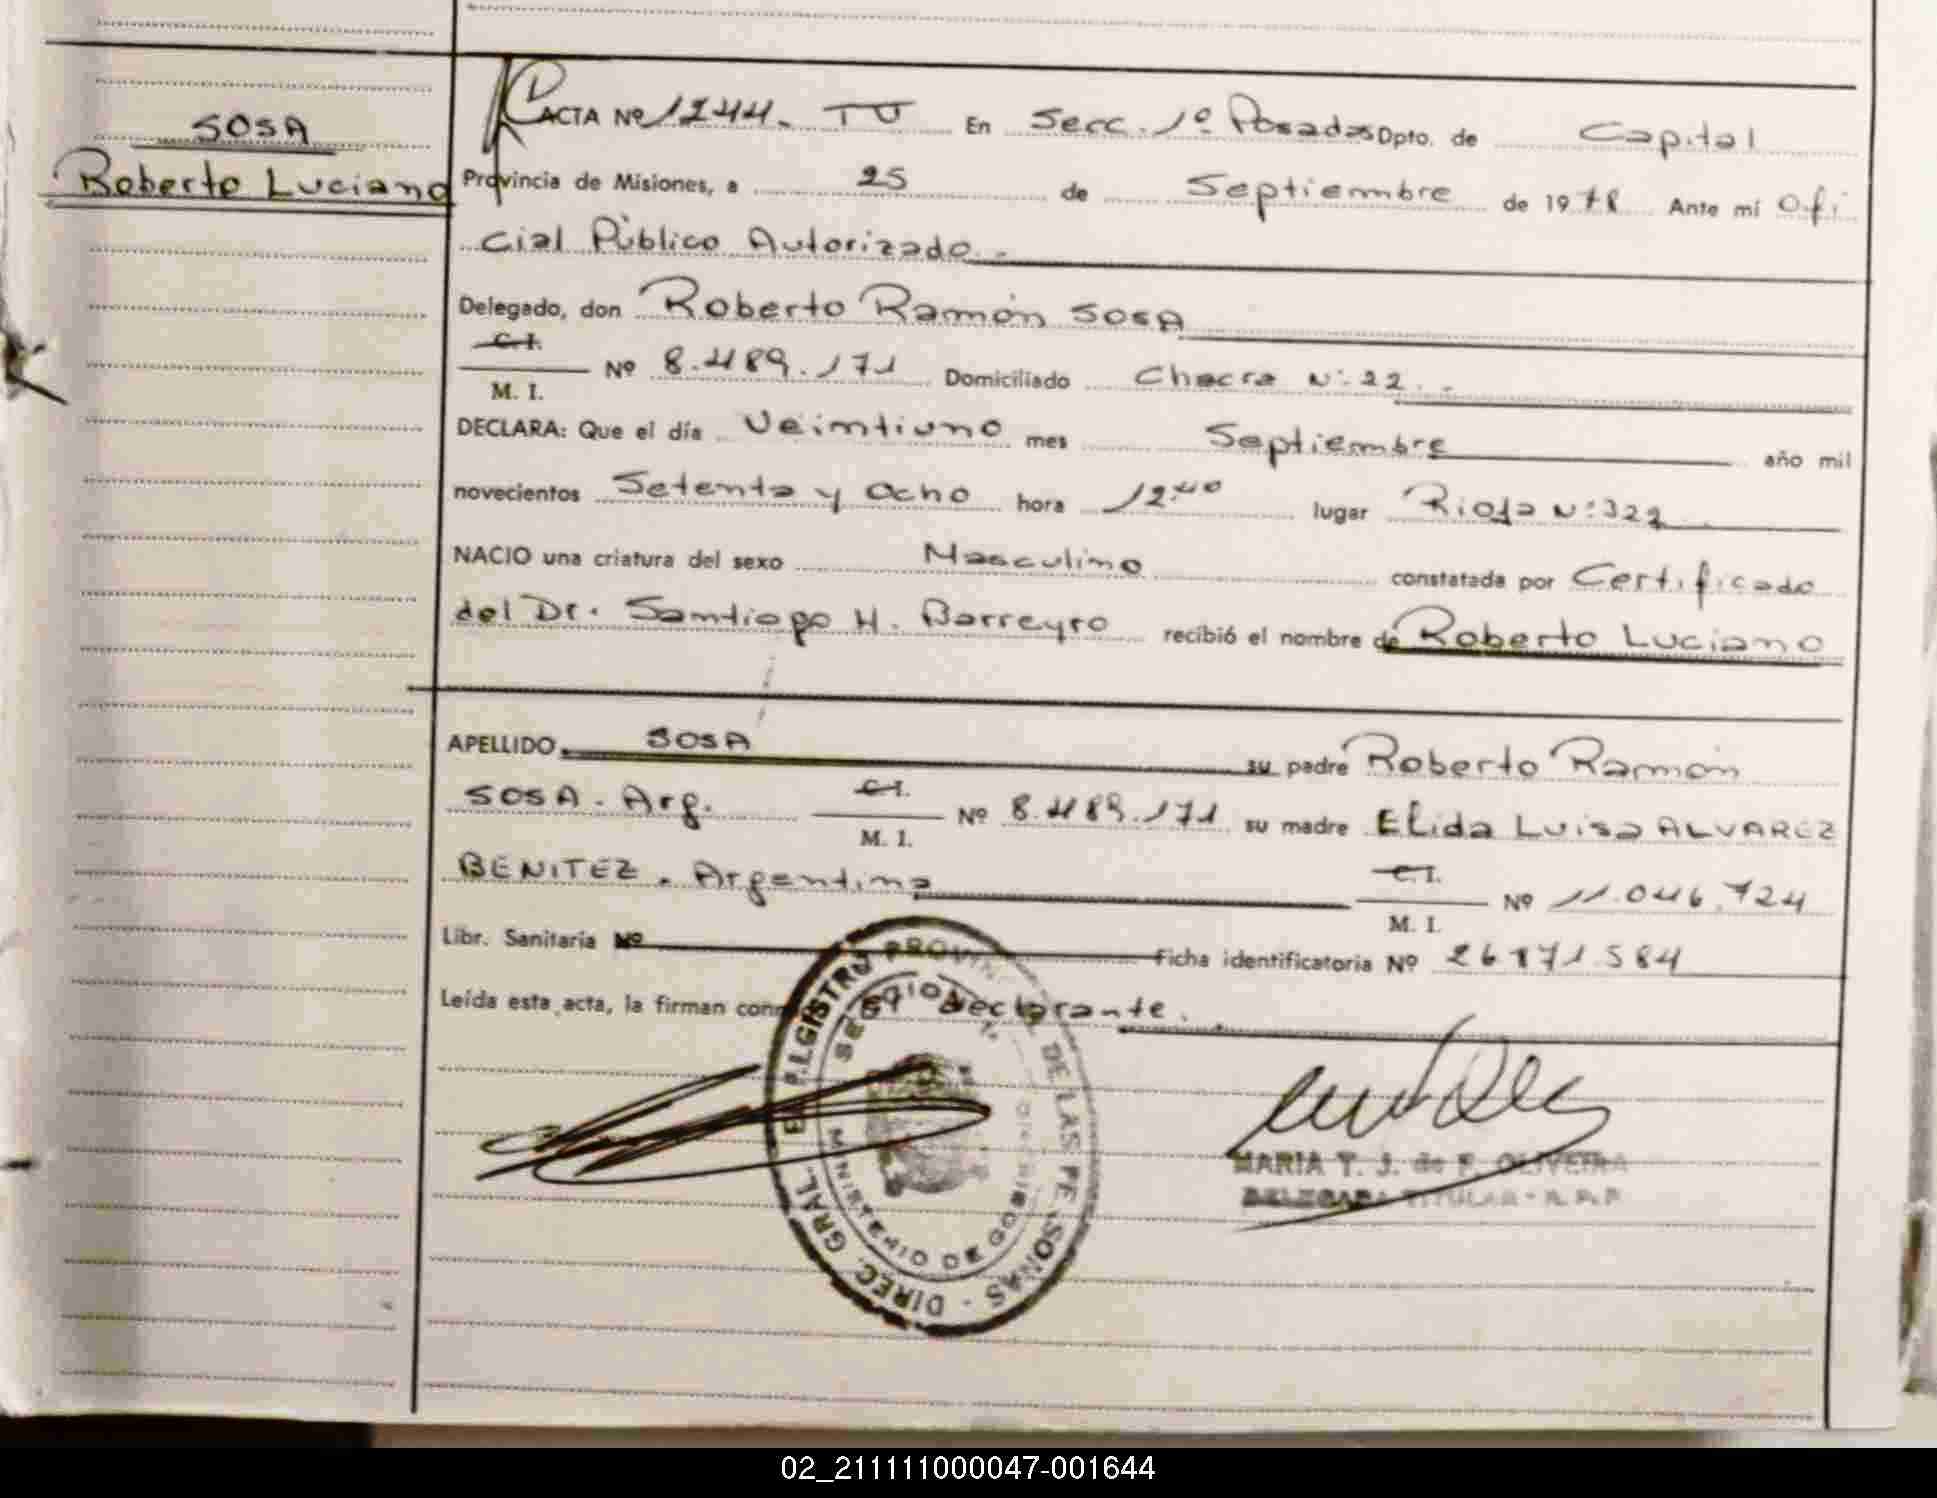 SOSA
Roberto Luciano
ACTA Nº 1244. TU En Secc. 1º Posadas Dpto. de Capital
Provincia de Misiones, a 25 de Septiembre de 1978 Ante mí Ofi
cial Público Autorizado.-
Delegado, don Roberto Ramón SOSA
C.I.
M. I. Nº 8.489.171 Domiciliado Chacra Nº 22.-
DECLARA: Que el día Veintiuno mes Septiembre año mil
novecientos Setenta y Ocho hora 12⁴⁰ lugar Rioja Nº 322
NACIO una criatura del sexo Masculino constatada por Certificado
del Dr. Santiago H. Barreyro recibió el nombre de Roberto Luciano
APELLIDO SOSA su padre Roberto Ramón
SOSA. Arg. C.I. M. I. Nº 8.489.171 su madre Elida Luisa ALVAREZ
BENITEZ. Argentina C.I. M. I. Nº 11.046.724
Libr. Sanitaria Nº Ficha identificatoria Nº 26.171.584
Leída esta acta, la firman conmigo El declarante.
DIREC. GRAL. REGISTRO PROVINCIAL DE LAS PERSONAS
SECCION 1º
MINISTERIO DE GOBIERNO
MARIA T. J. de F. OLIVEIRA
DELEGADA TITULAR - R. P. P.
02_211111000047-001644